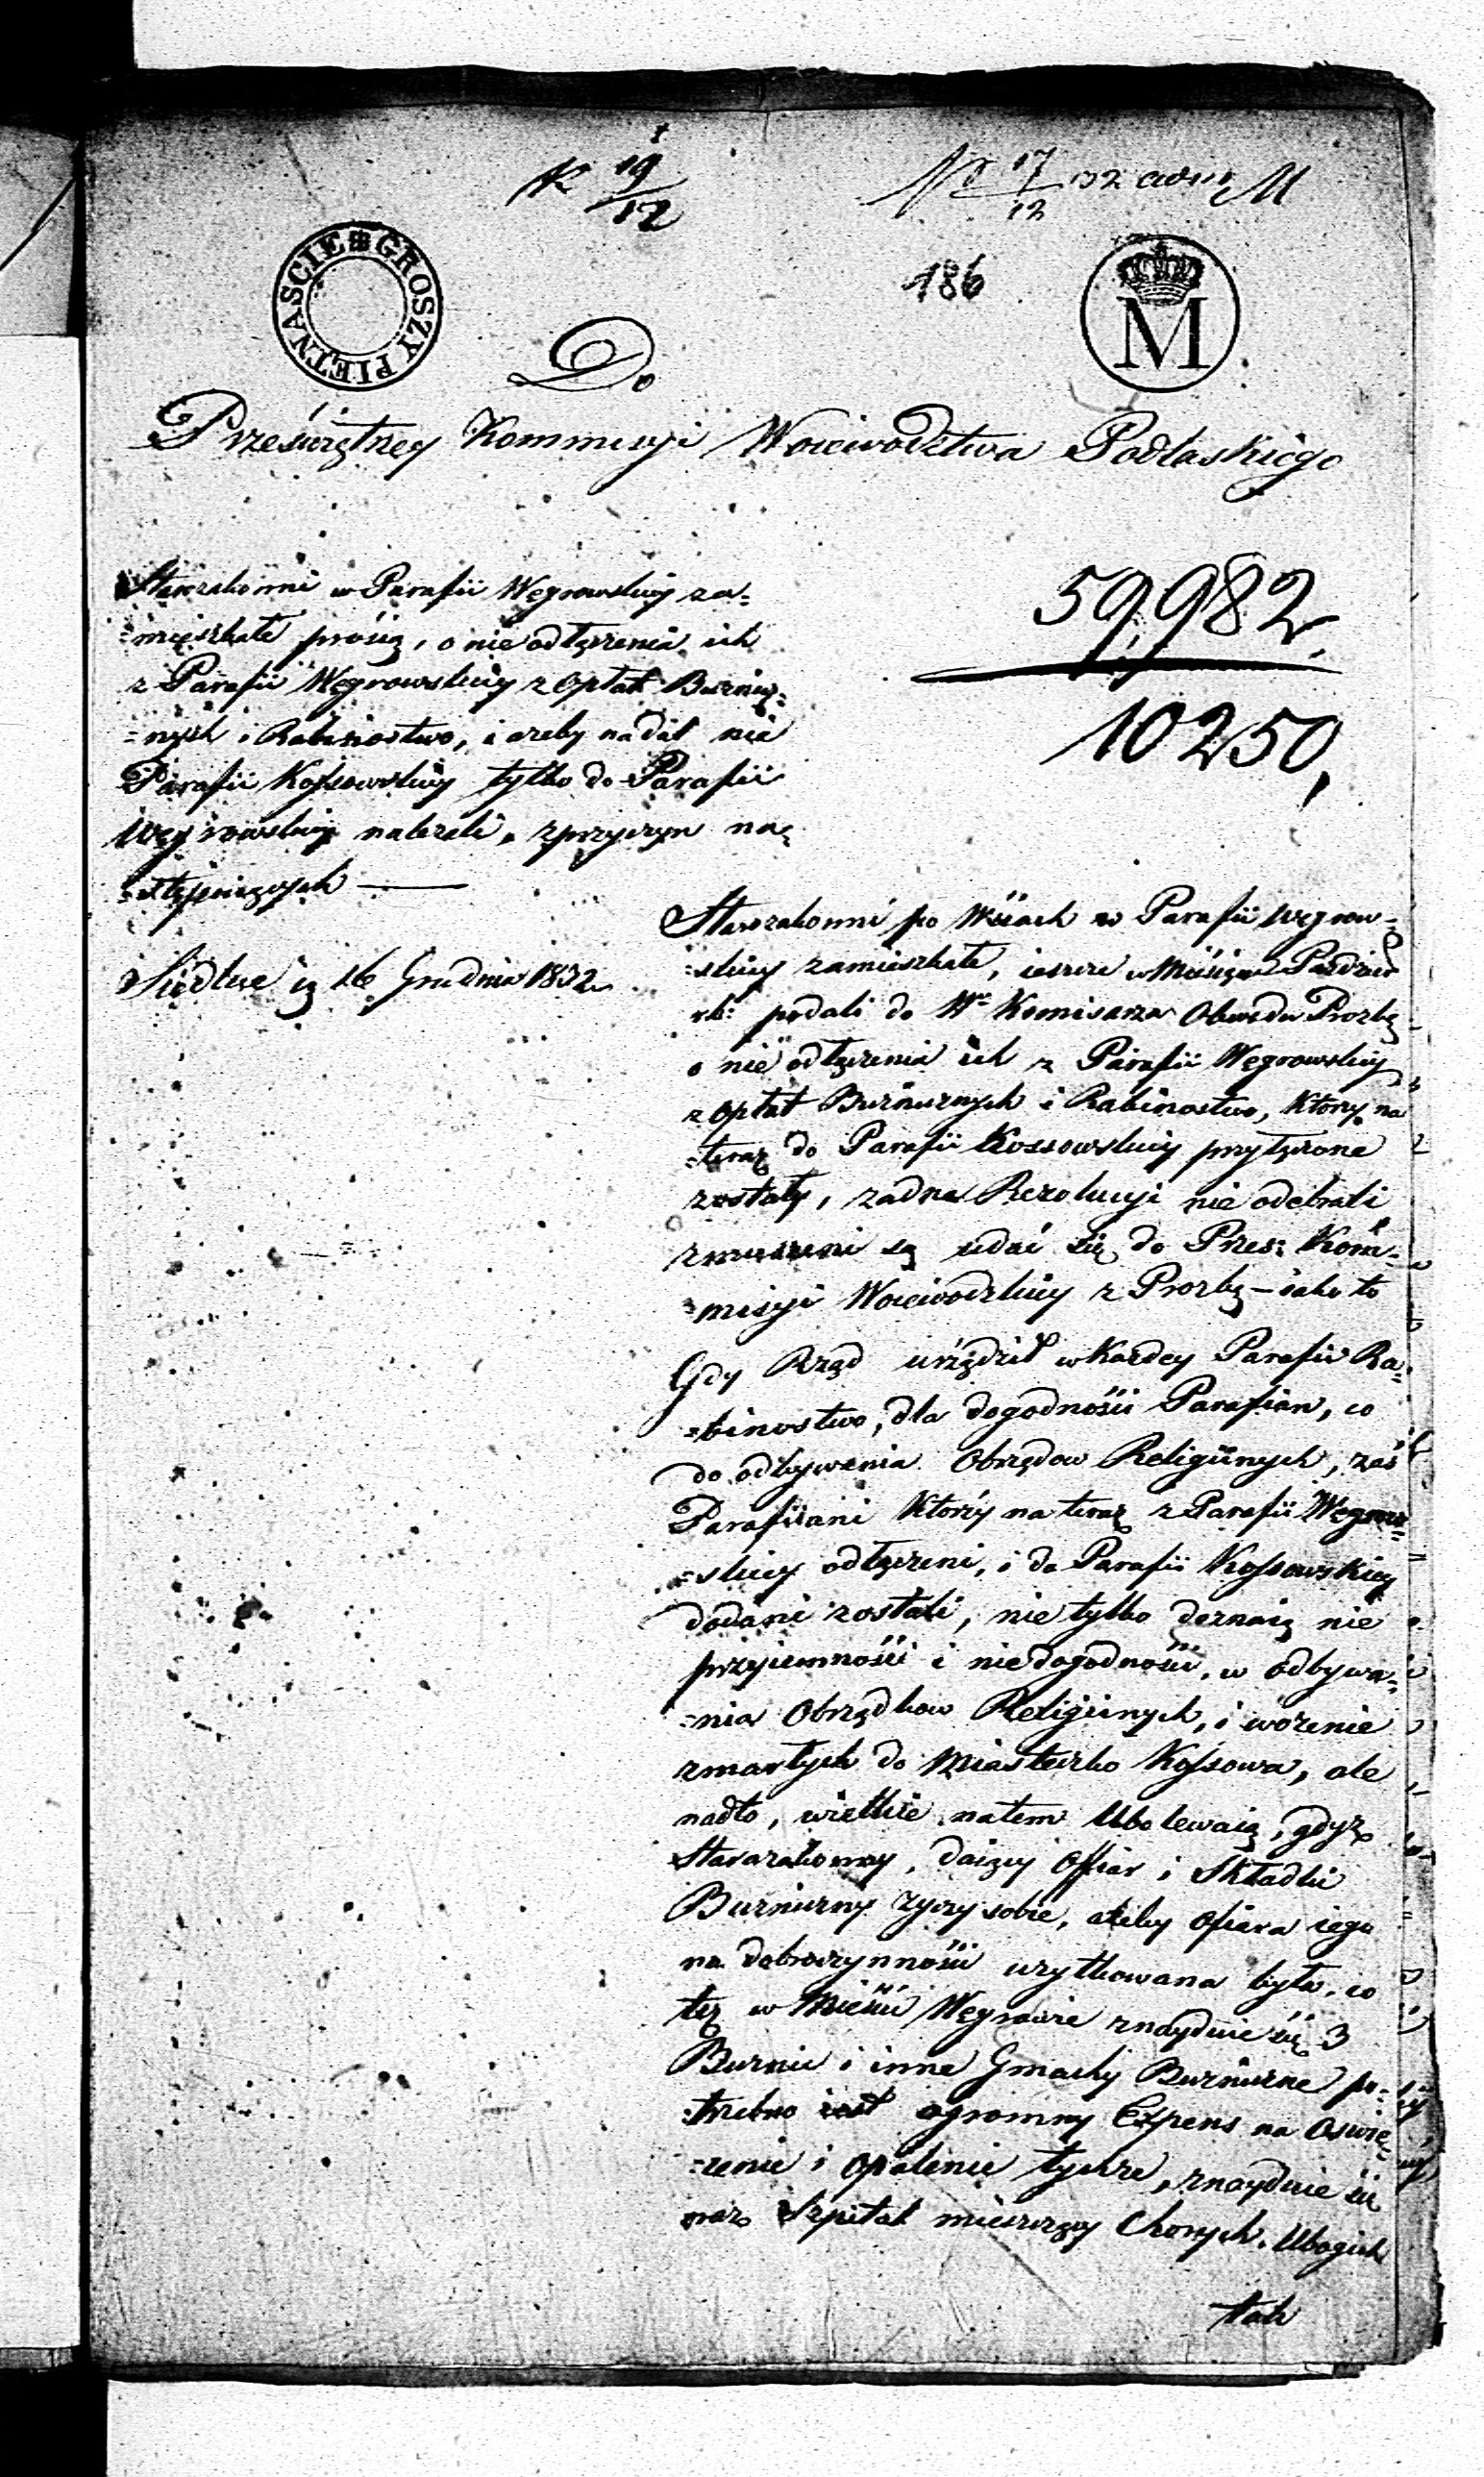 R 19/12
No 17/12 32 adm M
186
GROSZY PIĘTNAŚCIE
M
Do
Przeświętney Kommissyi Woiewodztwa Podlaskiégo
59,982.
10250,
Starozakonni w Parafii Węgrowskiey za=
=mieszkałe proszą, o nie odłączenia ich
z Parafii Węgrowskiey z Opłat Bużnicz=
=nych i Rabinostwo, i ażeby nadal nie
Parafii Kossowskiey tylko do Parafii
Węgrowskiey należeli, z przyczyn na=
=stępuiących —
Siedlce 16 Grudnia 1832
Starozakonni po Wsiach w Parafii Węgrow=
=skiey zamieszkałe, ieszcze w Miesiącu Paździer
rb: podali do Wo Komisarza Obwodu Prozbę
o nie odłączenia ich z Parafii Węgrowskiey
z Opłat Bużnicznych i Rabinostwo, Ktorzy na
=teraz do Parafii Kossowskiey przyłączone
zostały, żadna Rezolucyi nie odebrali
zmuszeni są udać się do Prześ: Kom=
=misyi Woiewodzkiey z Prozbą – iako to
Gdy Rząd urządził w Kazdey Parafii Ra=
=binostwo, dla dogodności Parafian, co
do odbywania Obrządow Religiinych, zaś
Parafiiani Ktorzy na teraz z Parafii Węgrow=
=skiey odłączeni, i do Parafii Kossowskiey
dodani zostali, nie tylko doznaią nie
przyiemności i niedogodności, w odbywa=
=nia Obrządkow Religiinych, i wożenie
zmarłych do Miasteczko Kossowa, ale
nadto, wielkie natem Ubolewaią, gdyż
Starozakonny, daiący Offiar i Składki
Bużniczny życzy sobie, ażeby ofiara iego
na dobroczynności użytkowana była, co
też w Mieście Węgrowie znayduie się 3
Bużnic i inne Gmachy Bużniczne po=
=trzebno iest ogromny Expens na Oświe=
=cenie i Opalenie tychże, znayduie się
oraz Szpital mieszczący Chorych. Ubogich
tak